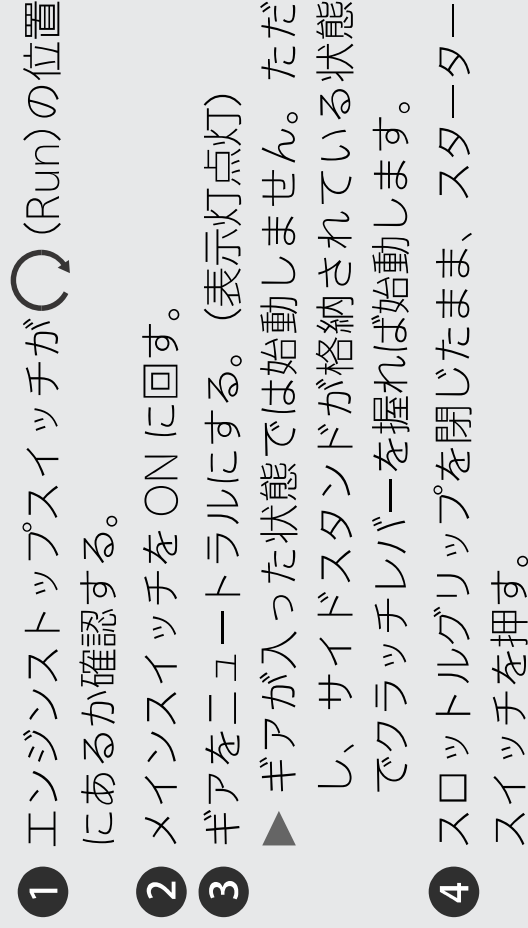 ❶ エンジンストップスイッチが (Run)の位置
にあるか確認する。
❷ メインスイッチを ON に回す。
❸ ギアをニュートラルにする。（表示灯点灯）
▶ ギアが入った状態では始動しません。ただ
し、サイドスタンドが格納されている状態
でクラッチレバーを握れば始動します。
❹ スロットルグリップを閉じたまま、スターター
スイッチを押す。